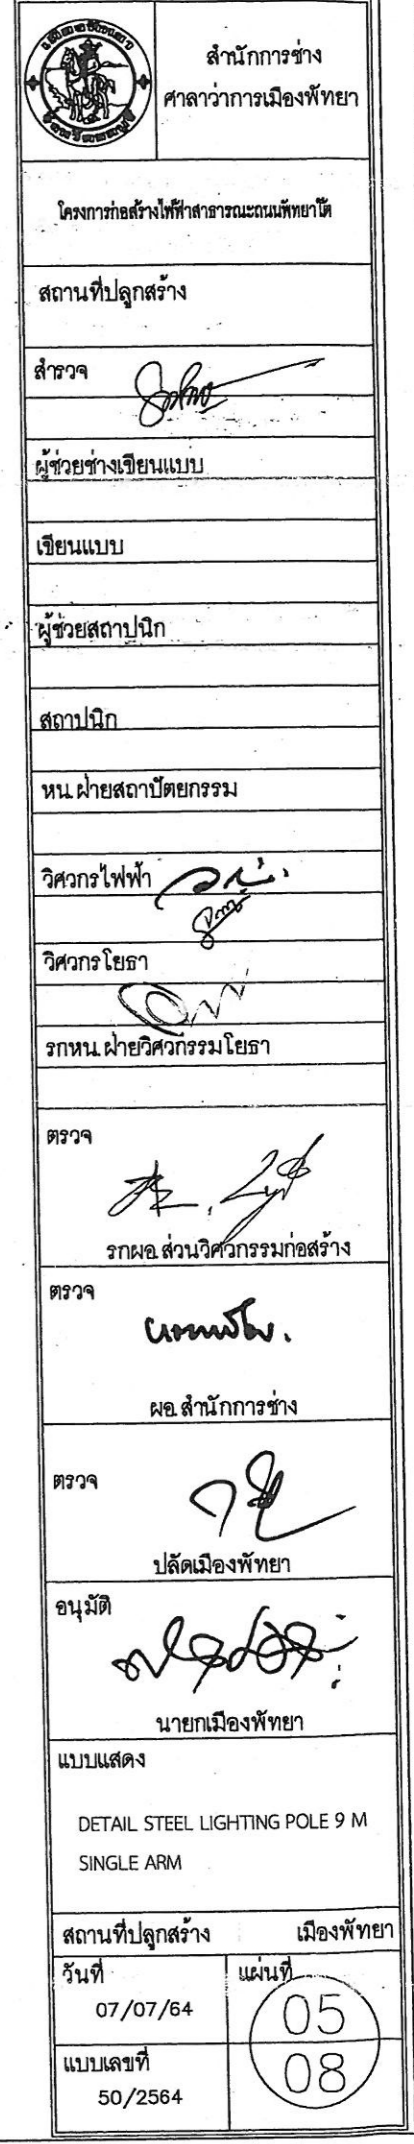 เมืองพัทยา
สำนักการช่าง
ศาลาว่าการเมืองพัทยา
โครงการก่อสร้างไฟฟ้าสาธารณะถนนพัทยาใต้
สถานที่ปลูกสร้าง
สำรวจ
ผู้ช่วยช่างเขียนแบบ
เขียนแบบ
ผู้ช่วยสถาปนิก
สถาปนิก
หน.ฝ่ายสถาปัตยกรรม
วิศวกรไฟฟ้า
วิศวกรโยธา
รกหน.ฝ่ายวิศวกรรมโยธา
ตรวจ
รกผอ.ส่วนวิศวกรรมก่อสร้าง
ตรวจ
ผอ.สำนักการช่าง
ตรวจ
ปลัดเมืองพัทยา
อนุมัติ
นายกเมืองพัทยา
แบบแสดง
DETAIL STEEL LIGHTING POLE 9 M
SINGLE ARM
สถานที่ปลูกสร้าง เมืองพัทยา
วันที่
07/07/64
แผ่นที่
05
08
แบบเลขที่
50/2564